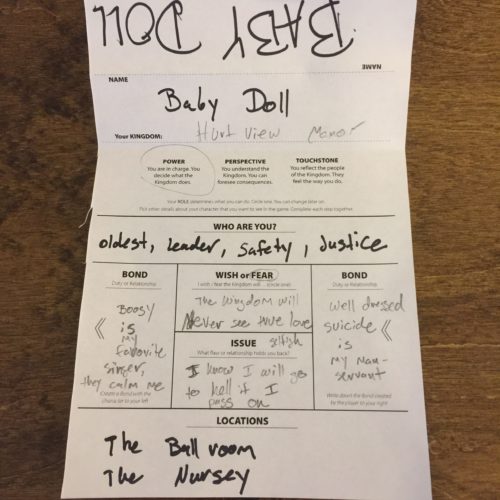 BABY DOLL
NAME
NAME
Baby Doll
Your KINGDOM: Hurt View Manor
POWER
You are in charge. You
decide what the
Kingdom does.
PERSPECTIVE
You understand the
Kingdom. You can
foresee consequences.
TOUCHSTONE
You reflect the people
of the Kingdom. They
feel the way you do.
Your ROLE determines what you can do. Circle one. You can change later on.
Pick other details about your character that you want to see in the game. Complete each step together.
WHO ARE YOU?
oldest, leader, safety, Justice
BOND
Duty or Relationship
Boosy
is
my
favorite
singer,
they calm me
Create a Bond with the
character to your left
WISH or FEAR
I wish / fear the Kingdom will... (circle one)
The kingdom will
Never see true love
ISSUE
selfish
What flaw or relationship holds you back?
I know I will go
to hell if I
pass on
BOND
Duty or Relationship
well dressed
suicide
is
my man-
servant
Write down the Bond created
by the player to your right
LOCATIONS
The Ball room
The Nursey